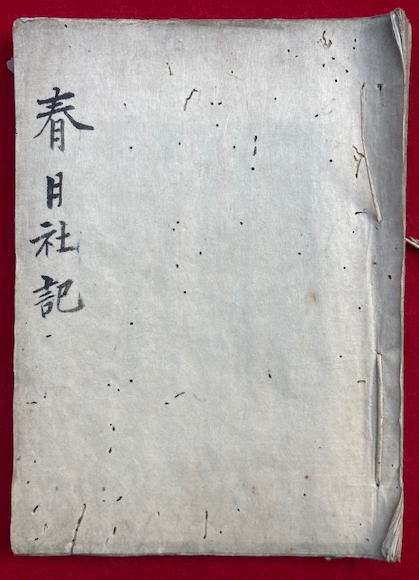 春日社記